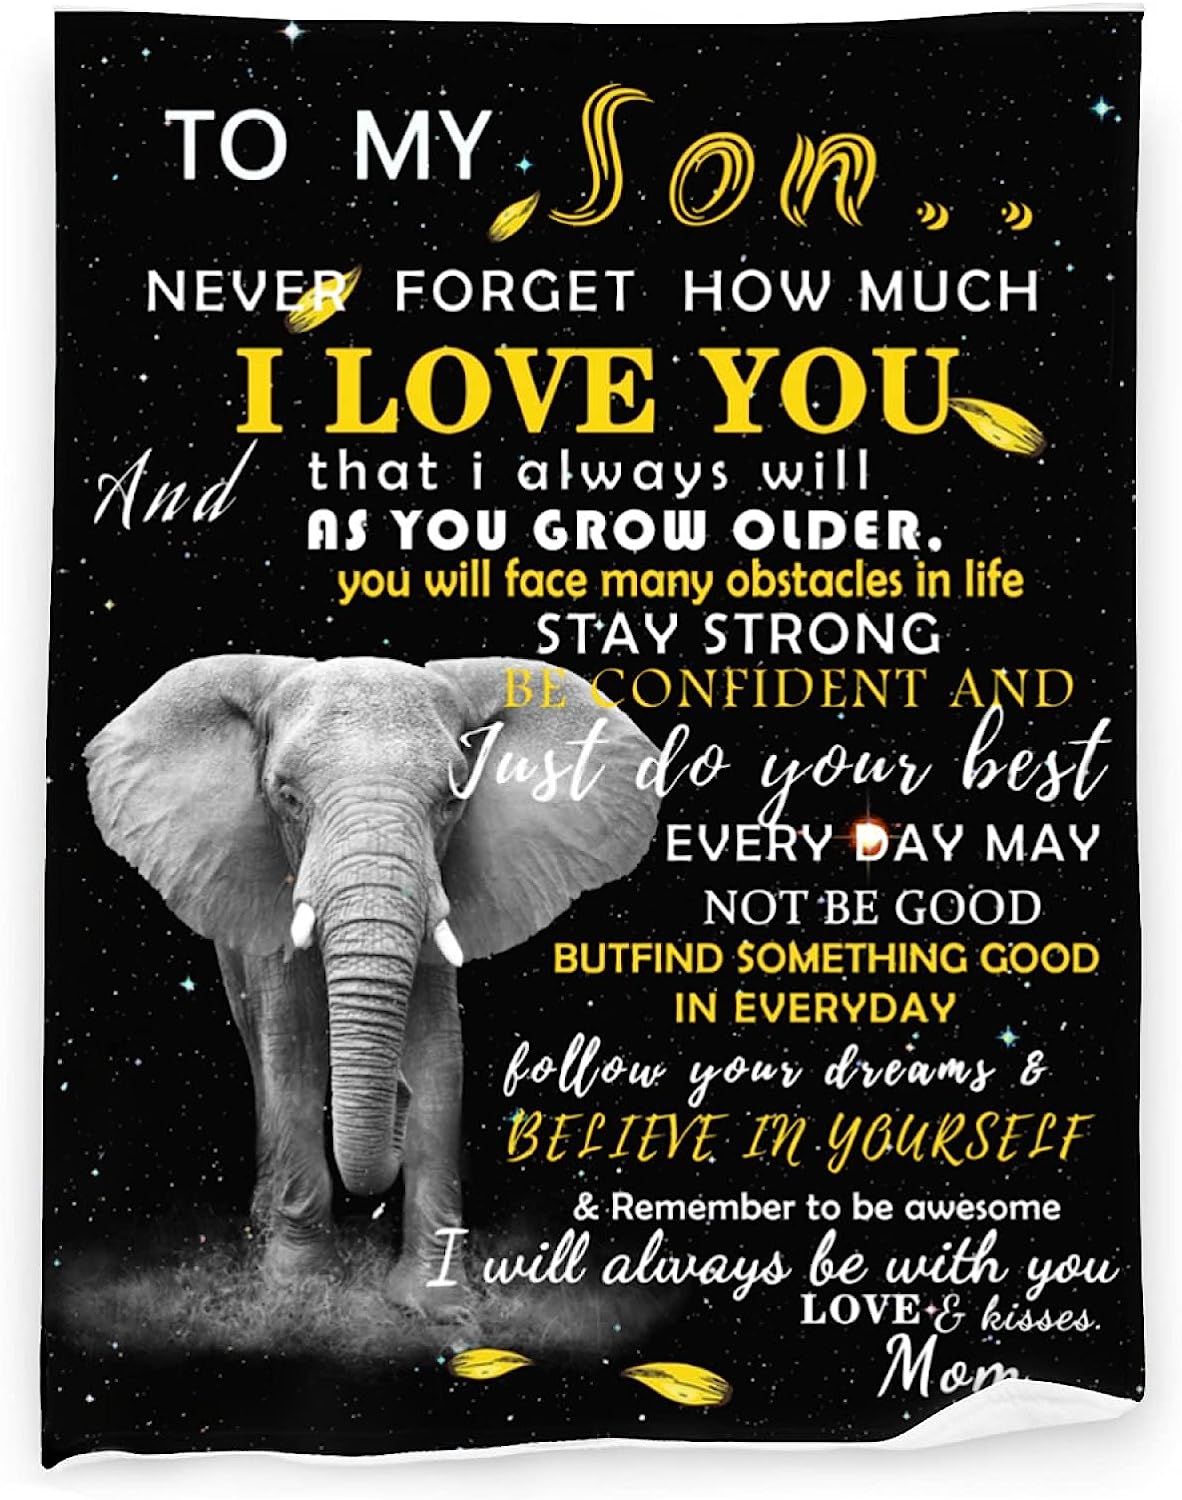 TO MY Son..
NEVER FORGET HOW MUCH
I LOVE YOU
And that i always will
AS YOU GROW OLDER.
you will face many obstacles in life
STAY STRONG
BE CONFIDENT AND
Just do your best
EVERY DAY MAY
NOT BE GOOD
BUTFIND SOMETHING GOOD
IN EVERYDAY
follow your dreams &
BELIEVE IN YOURSELF
& Remember to be awesome
I will always be with you
LOVE & kisses.
Mom